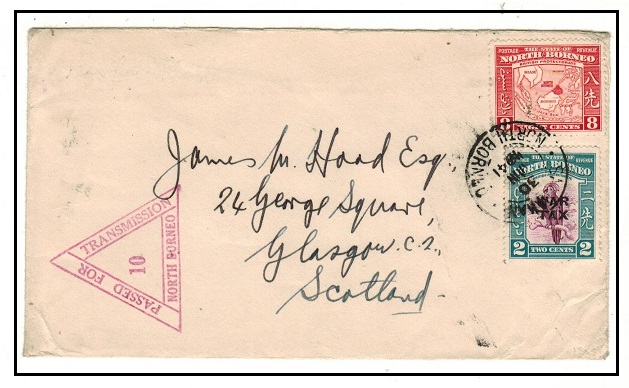 POSTAGE THE STATE OF REVENUE
NORTH BORNEO
BRITISH PROTECTORATE
八先
8 CENTS 8
NORTH BORNEO
1941
James M. Hood Esq.,
24 George Square,
Glasgow. C.2.,
Scotland.
THE STATE OF REVENUE
NORTH BORNEO
二先
WAR
TAX
2 TWO CENTS 2
PASSED FOR
TRANSMISSION
NORTH BORNEO
10